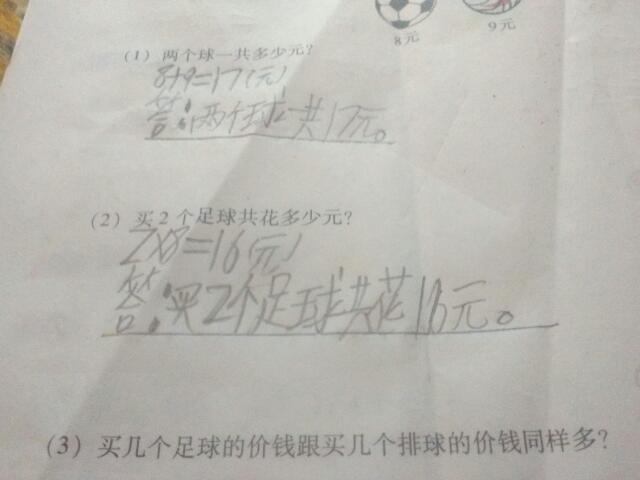 8元
9元
(1) 两个球一共多少元?
8+9=17(元)
答:两个球一共17元。
(2) 买2个足球共花多少元?
2×8=16(元)
答:买2个足球共花16元。
(3) 买几个足球的价钱跟买几个排球的价钱同样多?